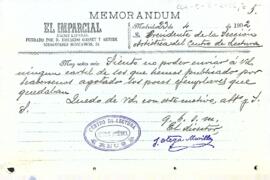 MEMORANDUM
5.
EL IMPARCIAL
DIARIO LIBERAL
FUNDADO POR D. EDUARDO GASSET Y ARTIME
MESONERO ROMANOS, 31
Madrid 23 4 1902
Sr. Presidente de la Sección
Artística del Centro de Lectura
Muy señor mío: Siento no poder enviar á Vd.
ningun cartel de los que hemos publicado por
habernos agotado los pocos ejemplares que
quedaban
Quedo de Vd. con este motivo, afto. y S.
S.
q. b. s. m.
El director
J. Ortega Munilla
CENTRO DE LECTURA
REUS